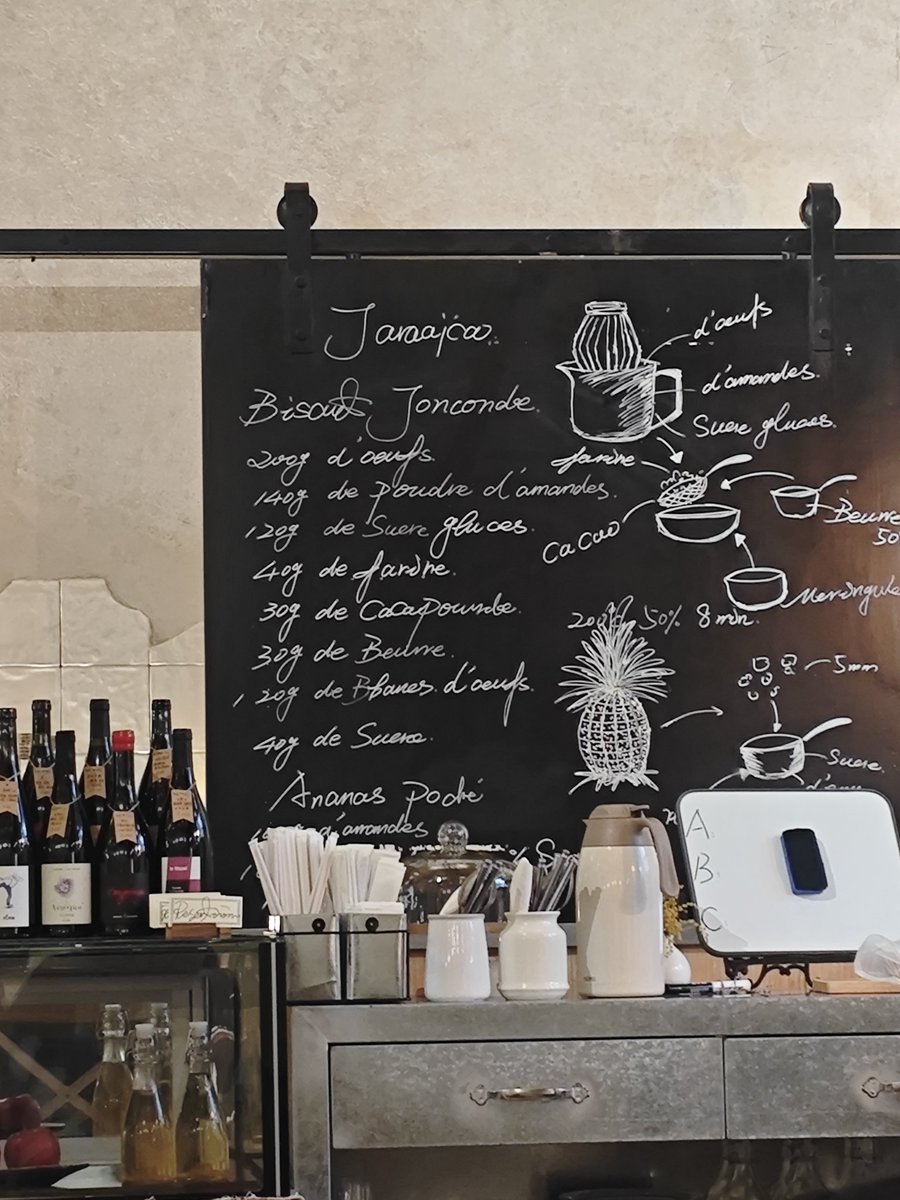 Jamaica.
Biscuit Joncondre.
200g d'oeufs.
140g de poudre d'amandes.
120g de Sucre gluces.
40g de farine.
30g de Cacapoundre.
30g de Beurre.
120g de Blancs d'oeufs.
40g de Sucre.
Ananas Poché
d'amandes
d'oeufs
d'amandes.
Sucre gluces.
farine
Cacao
Beurre
50
Meringue
200 50% 8 min.
5mm
Sucre.
d'eau
A.
B.
C